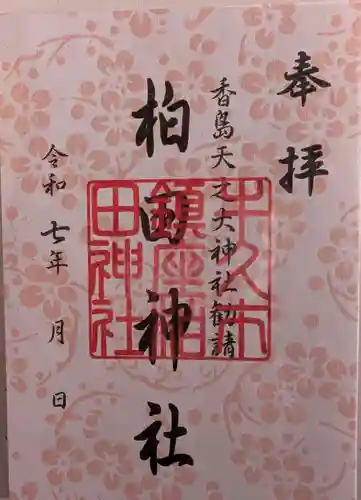 奉拝
香島天之大神社勧請
柏田神社
令和七年 月 日
牛久市
鎮座柏
田神社